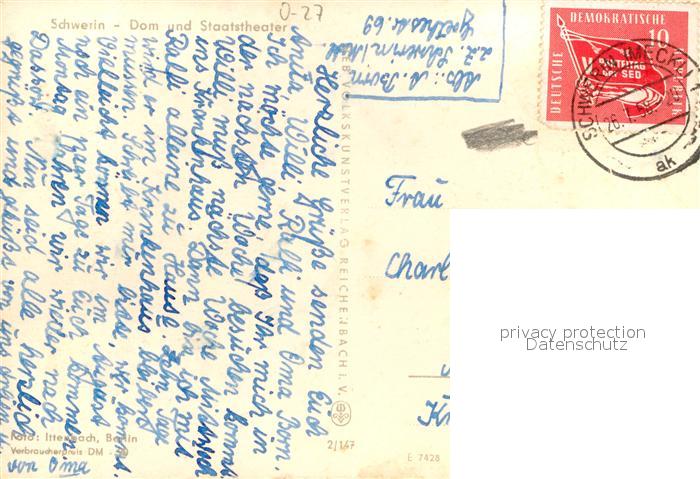 O-27
Schwerin - Dom und Staatstheater
Herzliche Grüße senden Euch
Anita, Willi, Ralfi und Oma Born.
Ich möchte gerne, daß Ihr mich in
der nächsten Woche besuchen kommt.
Willi muß nächste Woche Mittwoch
ins Krankenhaus. Dann bin ich mit
Ralfi alleine zu Hause.
wird er im Krankenhaus bleiben
müssen. Schreibt mir
Vielleicht können wir im
noch ein paar Tage zu Euch kommen.
Montag fahren wir wieder nach
Nun seid alle herzlich
gegrüßt und geküßt von uns
von Oma
Foto: Ittenbach, Berlin
Verbraucherpreis DM -,20
VEB VOLKSKUNSTVERLAG REICHENBACH i. V.
2/147
E 7428
Abs.: A. Born
z.Z. Schwerin/Meckl
Goethestr. 69
DEUTSCHE DEMOKRATISCHE
10
PARTEITAG
DER SED
SCHWERIN (MECKL) 1
26.
ak
Frau
Charl
privacy protection
Datenschutz